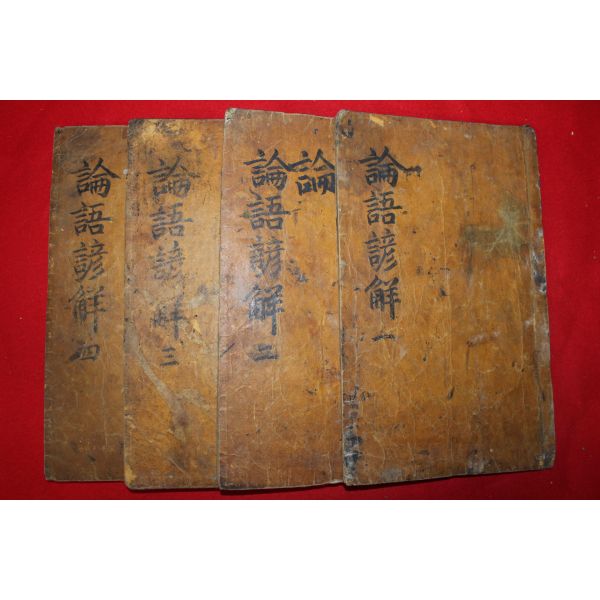 論語諺解 一
論
論語諺解 二
論語諺解 三
論語諺解 四